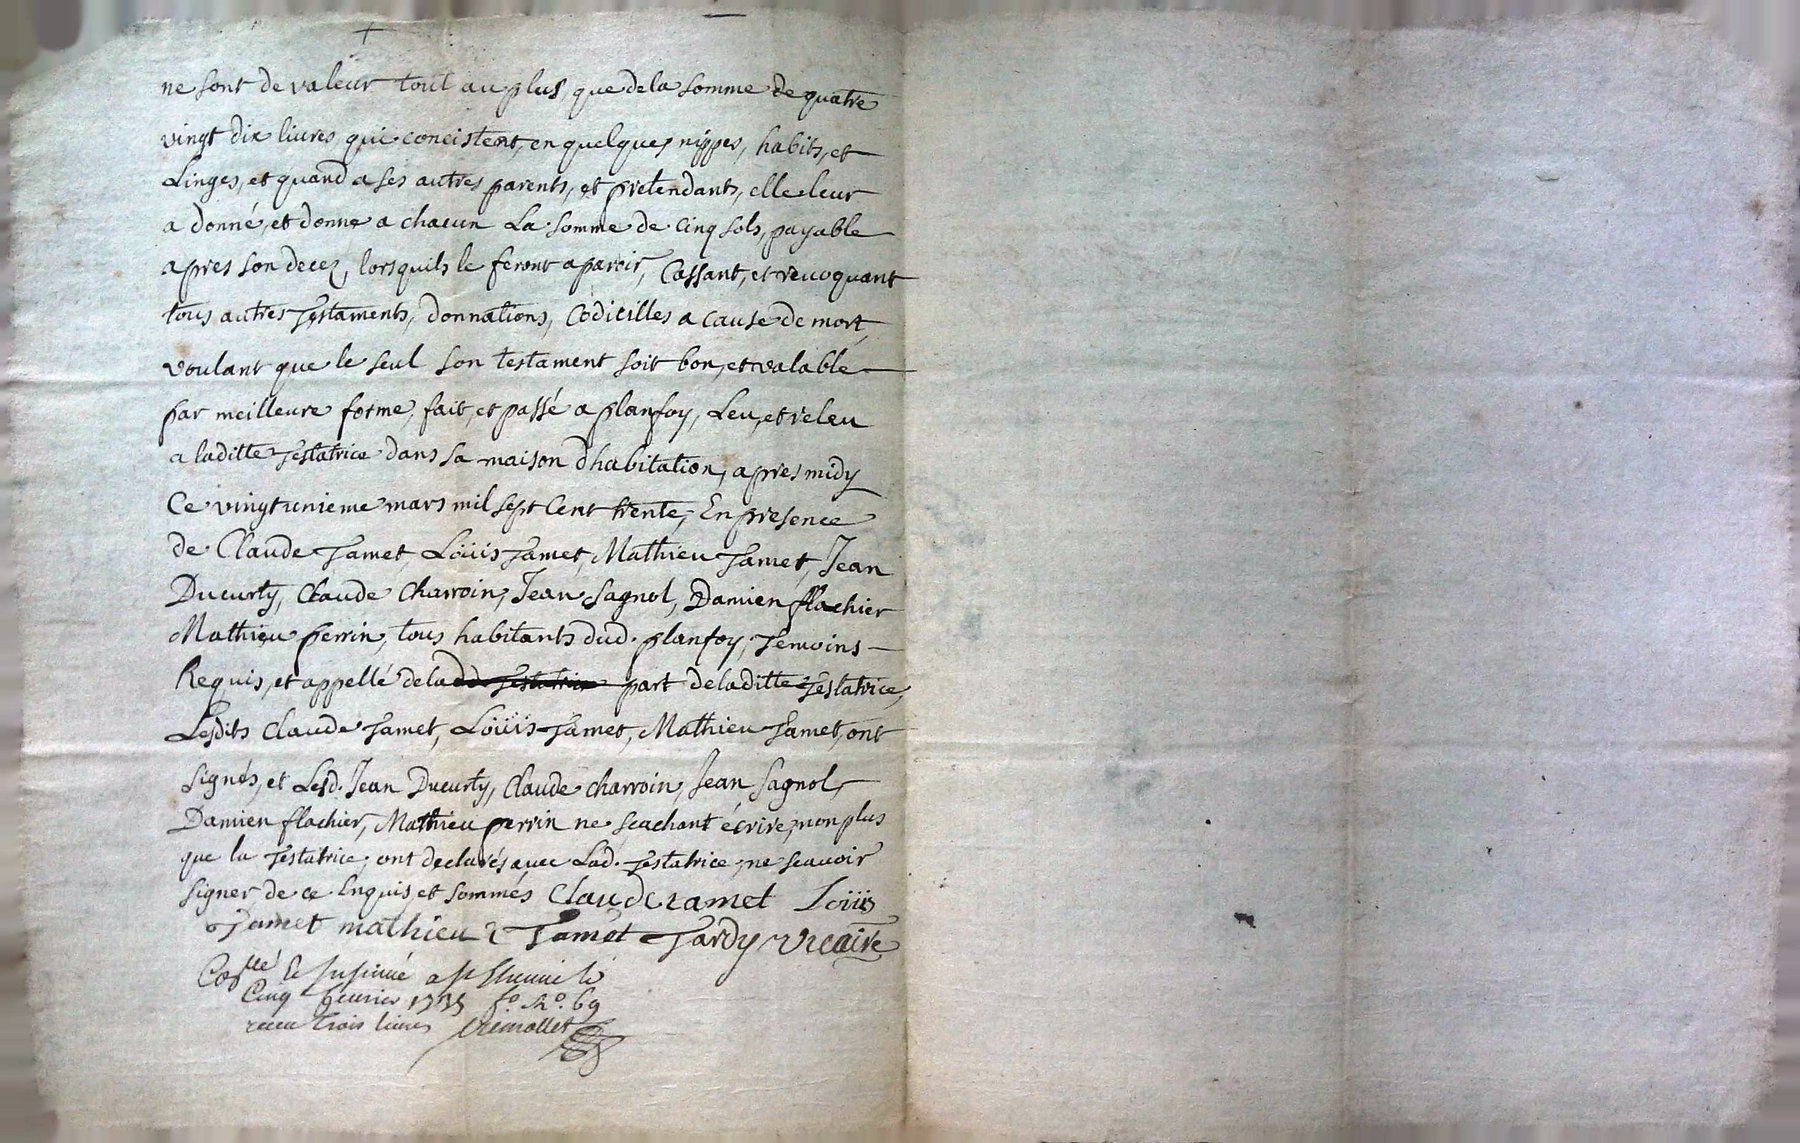 ne sont de valeur tout au plus que de la somme de quatre
vingt dix livres qui concistent, en quelques nippes, habits, et
Linges, et quand a ses autres parents, et pretendants, elle leur
a donné, et donne a chacun La somme de cinq sols, payable
apres son decez, lorsquils le feront aparoir, Cassant, et revoquant
tous autres Testaments, donnations, Codicilles a cause de mort,
voulant que le seul son testament soit bon, et valable
par meilleure forme, fait, et passé a planfoy, Leu, et releu
a laditte Testatrice dans sa maison dhabitation, apres midy
Ce vingtunieme mars mil sept Cent trente, En presence
de Claude Tamet, Loüis Tamet, Mathieu Tamet, Jean
Ducurty, Claude Charroin, Jean Sagnol, Damien flachier
Mathieu perrin, tous habitants dud. planfoy, Temoins
Requis, et appellé de la dd Testatrice part de laditte Testatrice,
Lesdits Claude Tamet, Loüis Tamet, Mathieu Tamet, ont
signés, et Lesd. Jean Ducurty, Claude charroin, Jean Sagnol,
Damien flachier, Mathieu perrin ne scachant écrire, non plus
que la Testatrice, ont declarés avec Lad. Testatrice, ne scavoir
signer de ce Enquis et sommés Claude tamet Loüis
Tamet mathieu Tamet Tardy vicaire
Con.llé et insinué a st Etienne le
Cinq fevrier 1735 fo. 69
receu trois livres